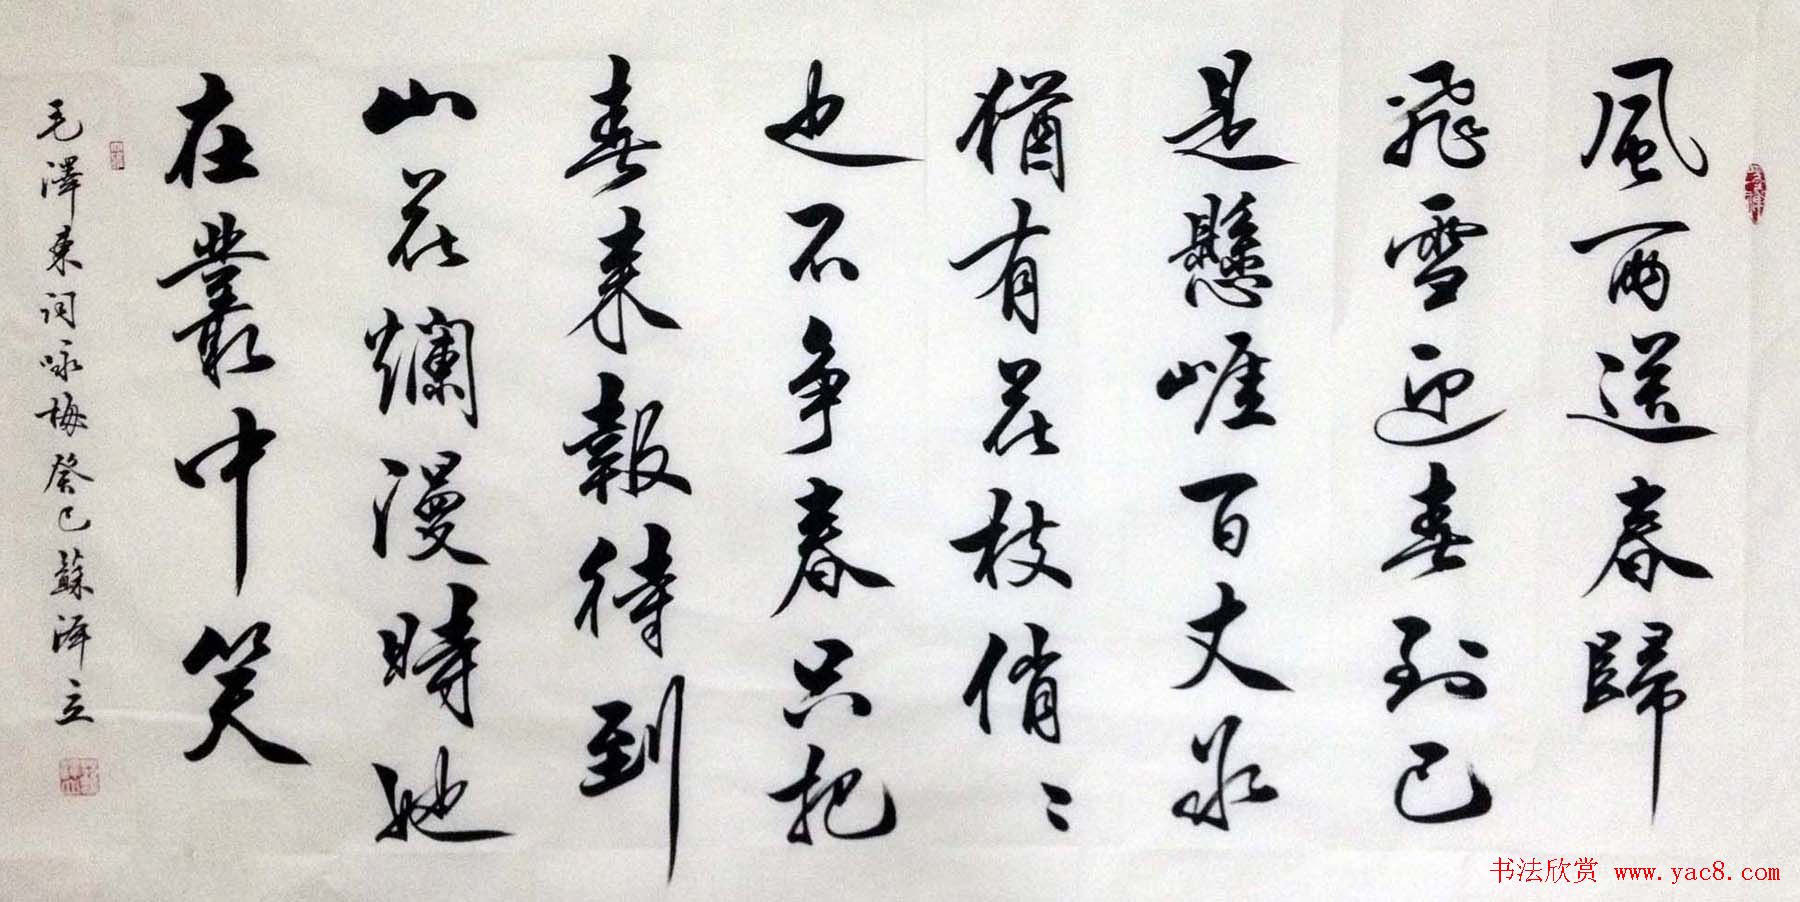 風雨送春歸
飛雪迎春到已
是懸崖百丈冰
猶有花枝俏〻
也不争春只把
春来報待到
山花爛漫時她
在叢中笑
毛澤東词咏梅癸巳蘇泽立
书法欣赏 www.yac8.com